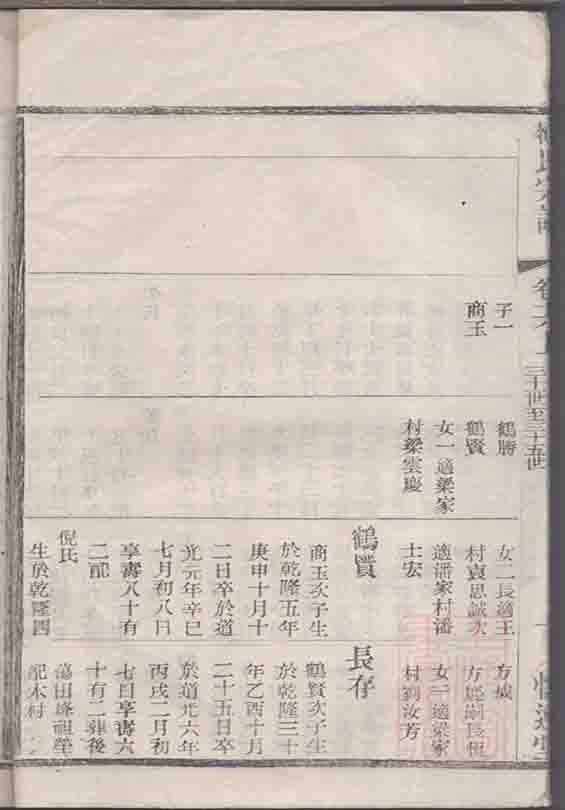 氏宗譜
三十一世至三十五世
子一
商玉
鶴勝
鶴賢
女一適梁家
村梁雲慶
女二長適王
村袁思誠次
適潘家村潘
士宏
鶴賢
商玉次子生
於乾隆五年
庚申十月十
二日卒於道
光元年辛巳
七月初八日
享壽八十有
二配
倪氏
生於乾隆四
女一適梁家
村劉汝芳
長存
鶴賢次子生
於乾隆三十
年乙酉十月
二十五日卒
於道光六年
丙戌二月初
七日享壽六
十有二葬後
蕩田塝祖塋
配木村